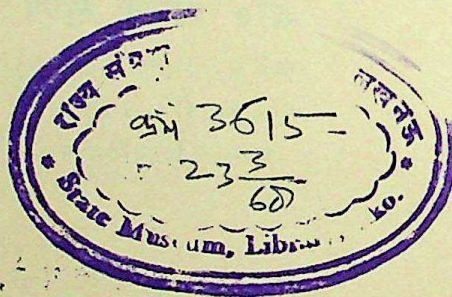 राज्य संग्र
लखनऊ
क्रम 3615
23 3/60
State Museum, Libra ko.